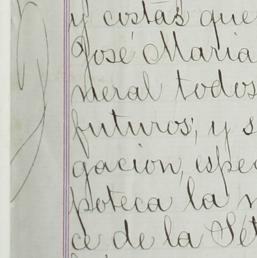 y costas que
José Maria
neral todos
futuros, y s
gacion, espe
poteca la
ce de la Sét